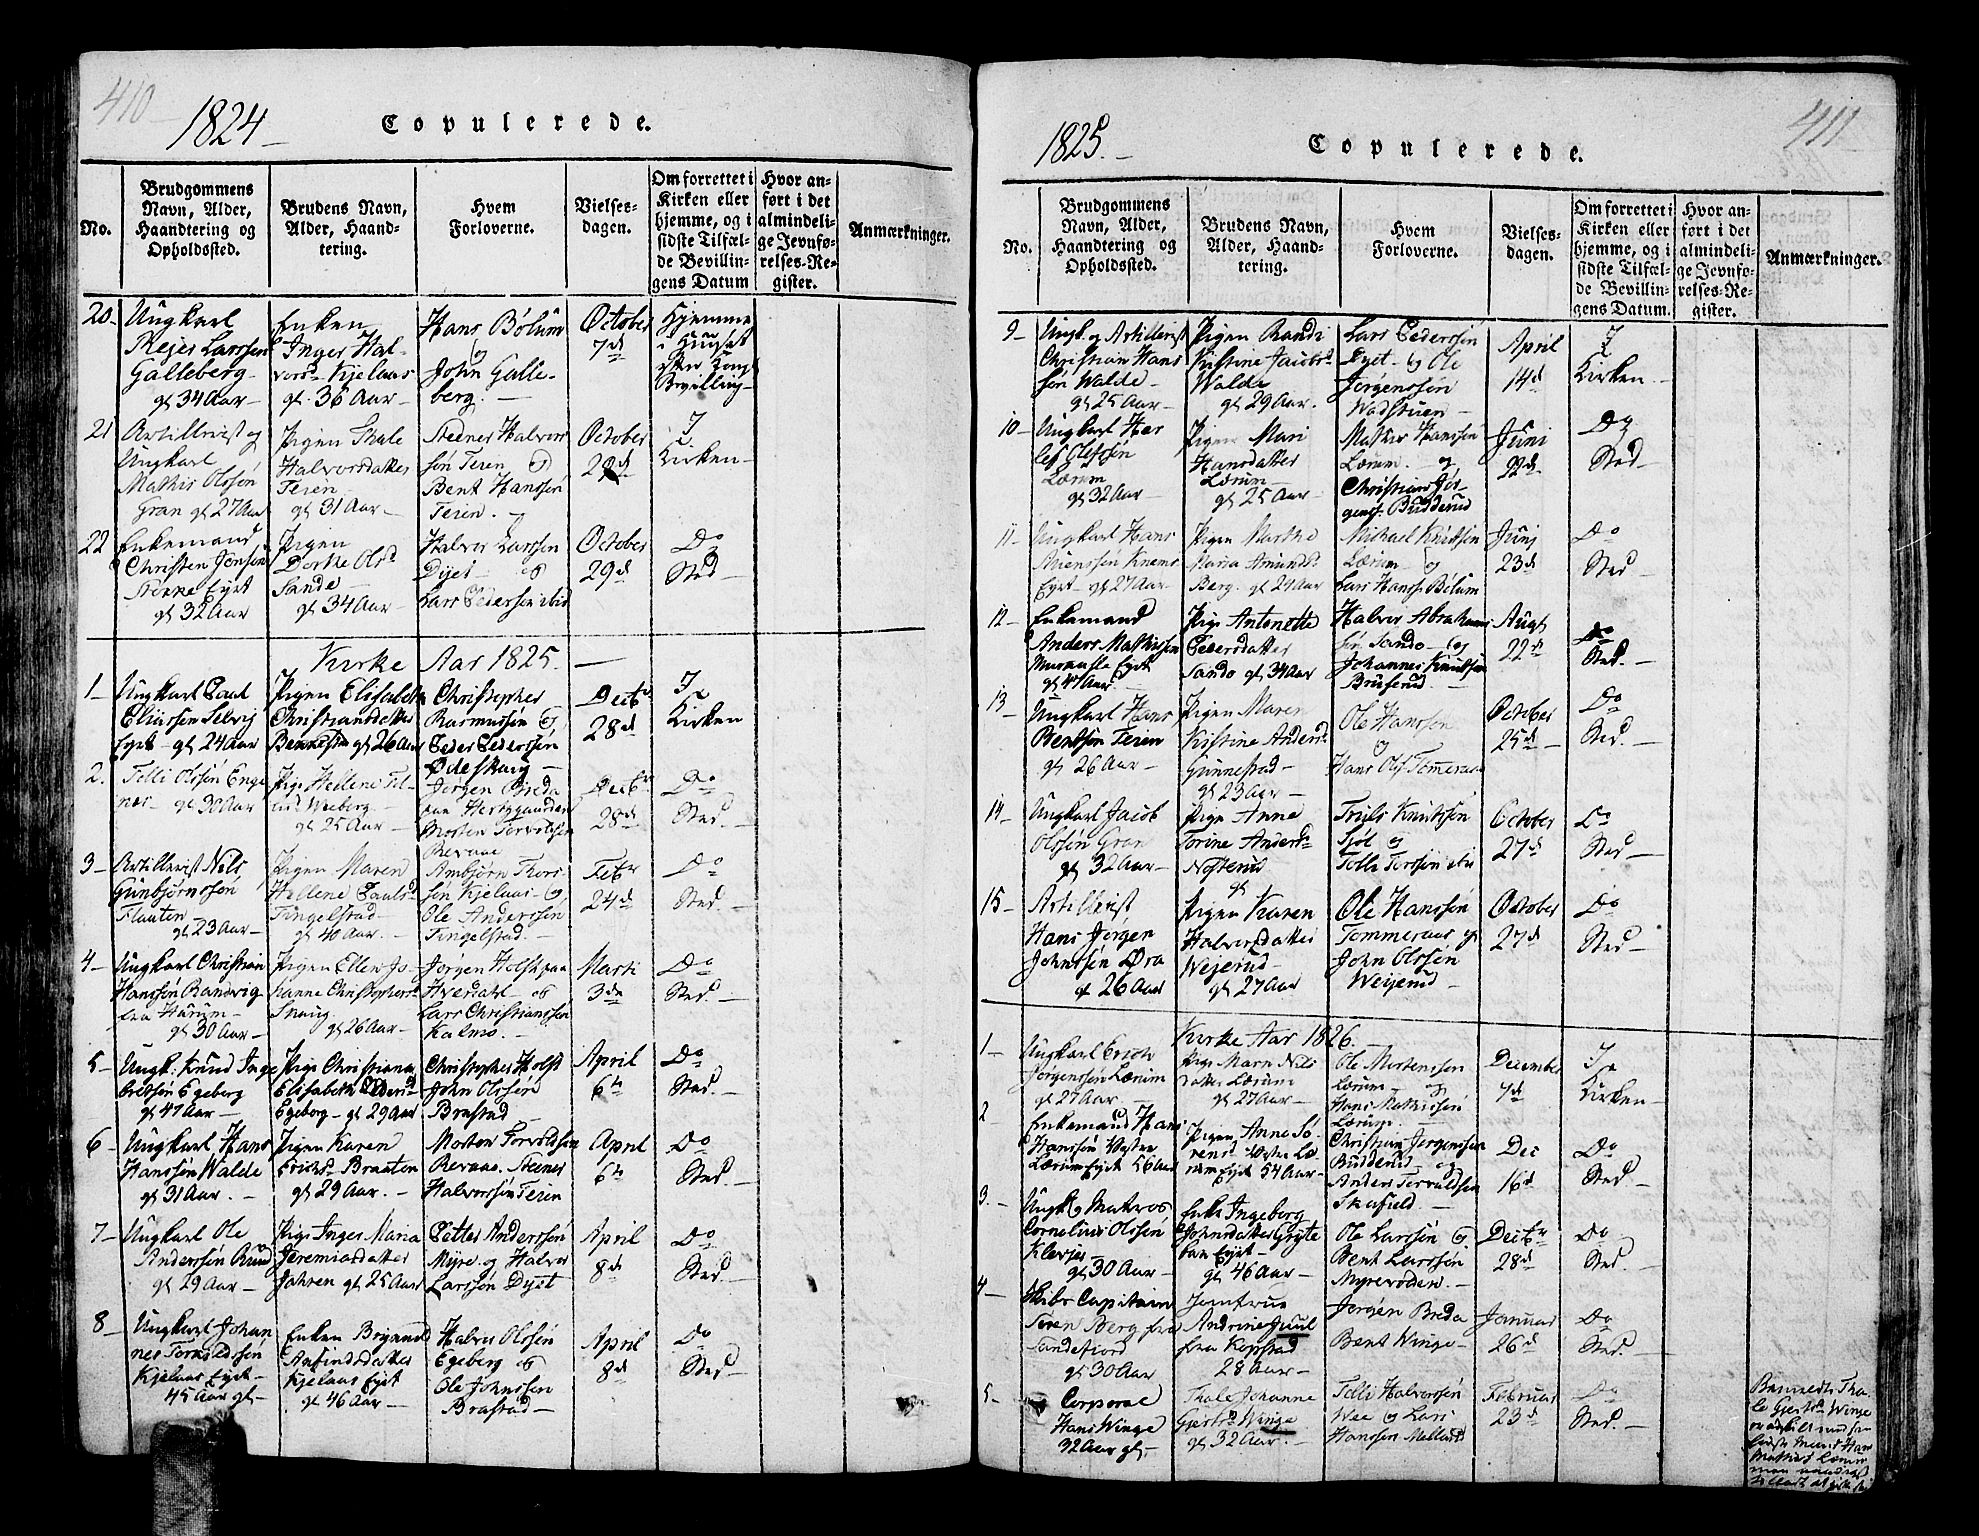 410
1824
Copulerede.
No.
Brudgommens Navn, Alder, Haandtering og Opholdssted.
Brudens Navn, Alder, Haandtering.
Hvem Forloverne.
Vielsesdagen.
Om forrettet i Kirken eller hjemme, og i sidste Tilfælde Bevillingens Datum
Hvor anført i det almindelige Jevnførelses-Register.
Anmærkninger.
20
Ungkarl
Larssen
Galleberg
gl 34 Aar
Enken
Inger Hal-
vorsd Kjelaas
gl. 36 Aar
Hans Bölum
og
John Galle-
berg.
October
7d
Hjemme
i Huset
efter Kong
Bevilling
21
Artillerist og
Ungkarl
Mathis Olssön
Gran gl 27 Aar
Pigen Thale
Halvorsdatter
Teien
gl 31 Aar
Steener Halvor
sön Teien og
Bent Hanssön
Teien.
October
I
Kirken
22
Enkemand
Christen Jonsen
Eyet
gl 32 Aar
Pigen
Dorthe Olsd
Sande
gl 34 Aar
Halvor Larssen
Dyet og
Lars Pedersen ibid
October
29d
Do
Sted
Kirke Aar 1825.
1
Ungkarl Paul
Eliassen Selvig
Eyet gl 24 Aar
Pigen Elisabeth
Christiansdatter
gl 26 Aar
Christopher
Rasmussön og
Peder Pederssön
Ödeskaug
Decbr
28d
I
Kirken
2.
Tolli Olssön Enge
næs gl 30 Aar
Pige Hellene
Weeberg
gl 25 Aar
Jörgen Breda
paa
Morten Torvoldsen
Revaae
Decbr
28d
Do
Sted.
3
Artillerist Nils
Gunbjörnssön
Flauten
gl 23 Aar
Pigen Maren
Hellene Paulsd
Tingelstad
gl 40 Aar.
Ambjörn Thors
sön Kjelaas og
Ole Anderssön
Tingelstad.
Febr
24d
Do
Sted.
4
Ungkarl Christian
Hanssön Randvig
fra Hurum
gl 30 Aar
Pigen Ellen Jo-
hanne Christophersd
Skaug gl 26 Aar
Jörgen Holst paa
Hvedahl og
Lars Christianssön
Holmö
Marti
3de
Do
Sted.
5
Ungk: Knud Inge
bretsön Egeberg
gl 47 Aar
Pige Christiana
Elisabeth Pedersd
Egeberg gl 29 Aar
Christopher Holst
John Olssön
Brastad
April
6te
Do
Sted.
6
Ungkarl Hans
Hanssön Walde
gl 31 Aar.
Pigen Karen
Erichsd Braaten
gl 29 Aar.
Morten Torvoldsen
Revaae. Steener
Halvorssön Teien
April
6te
Do
Sted.
7
Ungkarl Ole
Anderssön Ruud
gl 29 Aar
Pige Inger Maria
Jeremiasdatter
Jahren gl 25 Aar
Petter Anderssön
Myre. og Halvor
Larssön Dyet
April
8d
Do
Sted.
8
Ungkarl Johan
nes Torkildssön
Kjelaas Eyet
45 Aar gl
Enken
Anfindsdatter
Kjelaas Eyet
gl 46 Aar
Halvor Olssön
Egeberg og
Ole Johnssön
Brastad
April
8d
Do
Sted.
1825.
Copulerede.
411
No.
Brudgommens Navn, Alder, Haandtering og Opholdssted.
Brudens Navn, Alder, Haandtering.
Hvem Forloverne.
Vielsesdagen.
Om forrettet i Kirken eller hjemme, og i sidste Tilfælde Bevillingens Datum.
Hvor anført i det almindelige Jevnførelses-Register.
Anmærkninger.
9
Ungk. og Artillerist
Christian Hans
sön Walde
gl 25 Aar
Pigen Randi
Kristine Jacobsd
Walde
gl 29 Aar.
Lars Pederssön
Eyet og Ole
Jörgenssön
Wadstuen
April
14d
I
Kirken
10
Ungkarl Her
lof Olssön
Lærum
gl 32 Aar
Pigen Mari
Hansdatter
Lærum
gl 25 Aar
Mathis Hanssön
Lærum. og
Christian Jör-
genss. Budderud
Juni
22d
Do
Sted
11
Ungkarl Hans
Knems
Eyet gl 27 Aar
Pigen Marthe
Maria Amundsd
Berg. gl 24 Aar
Michael Knudsen
Lærum og
Lars Hanss Bölum
Juni
23d
Do
Sted
12
Enkemand
Anders Mathissen
Eyet
gl 47 Aar
Pige Antonette
Pedersdatter
Sando gl 34 Aar
Halvor Abraham
sön Sando og
Johannes Knudsen
Bruserud.
Augt
22d
Do
Sted.
13
Ungkarl Hans
Bentsön Teien
gl 26 Aar
Pigen Maren
Kristine Andersd
Gunnestad
gl 23 Aar
Ole Hanssön
og
Hans Ols: Tömeraas
October
25d
Do
Sted.
14
Ungkarl Jacob
Olssön Gran
gl 32 Aar
Pige Anne
Torine Andersd
Nösterud
gl
Truls Knudssön
Sjöl og
Tolle Torssön
October
27d
Do
Sted
15
Artillerist
Hans Jörgen
Johnssön Öra
gl 26 Aar
Pigen Karen
Halvorsdatter
Wejerud
gl 27 Aar
Ole Hanssön
Tommeraas og
John Olssön
Weijerud
October
27d
Do
Sted
Kirke Aar 1826.
1
Ungkarl Erich
Jörgenssön Lærum
gl 27 Aar
Pige Maren Nils
datter Lærum
gl 27 Aar
Ole Mortenssen
Lærum og
Hans Mathissön
Lærum.
December
7d
I
Kirken
2
Enkemand Hans
Hanssön Vestre
Lærum Eyet 56 Aar
Pigen Anne Sö-
rensd Vestre Læ
rum Eyet 54 Aar
Christian Jörgenssen
Budderud og
Anders Torvaldsen
Skafield.
Dec
16d
Do
Sted.
3
Ungk. og Matros
Cornelius Olssön
Klevjer
gl 30 Aar
Enke Ingeborg
Johnsdatter Gryte
bak Eyet
gl 46 Aar
Ole Larssön og
Bent Larssön
Myrevolden.
Decbr
28d
Do
Sted.
4
Skibs Capitain
Sören Berg fra
Sandefiord
gl 30 Aar
Jomfrue
Andrine Juul
fra Kopstad
28 Aar
Jörgen Breda
Bent Winge
Januar
26d
Do
Sted.
5
Corporal
Hans Winge
32 Aar gl
Thale Johanne
Gjertsd Winge
gl 32 Aar.
Tolli Halvorssön
Wee og Lars
Hanssen Mellerud
Februar
23d
Do
Sted
Bemeldte Tha-
le Gjertsd Winge
er adskilt
Mand Han
Mathis Lærum